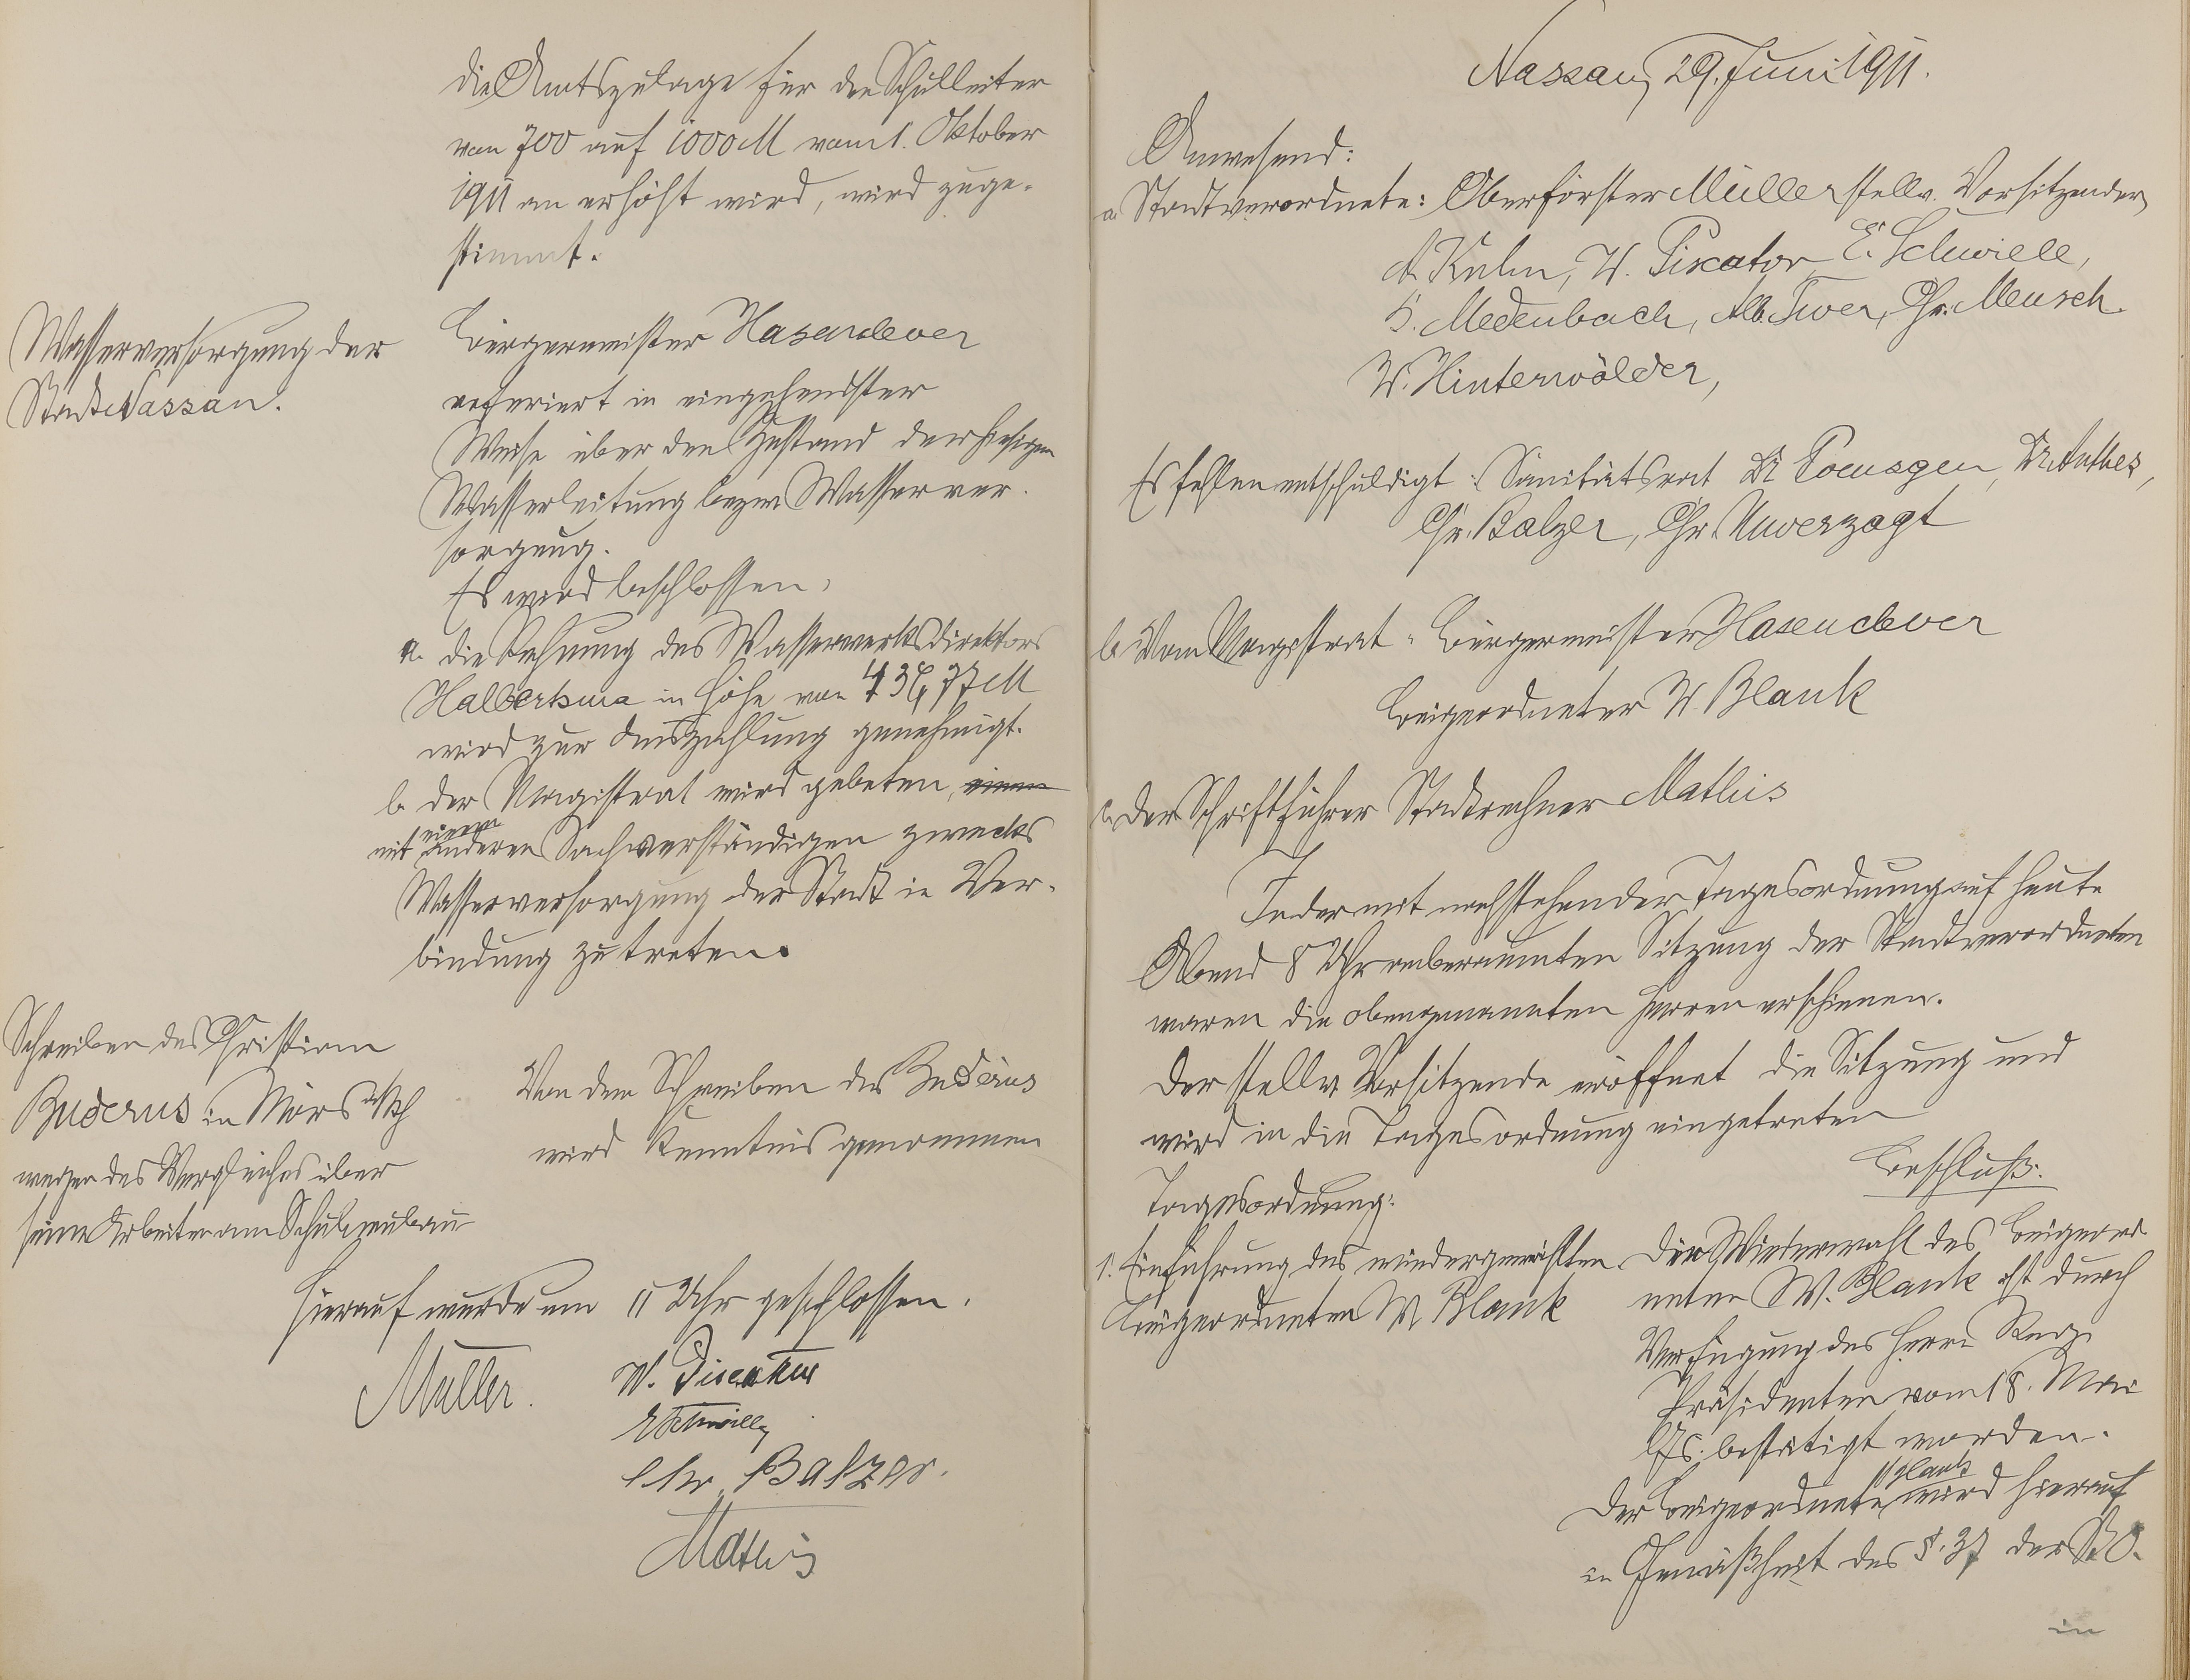 die Amtszulage für den Schulleiter
von 700 auf 1000 M vom 1. Oktober
1911 an erhöht wird, wird zuge-
stimmt.
Wasserversorgung der
Stadt Nassau.
Bürgermeister Hasenclever
referiert in eingehendster
Weise über den Zustand der hiesigen
Wasserleitung bezw. Wasserver-
sorgung.
Es wird beschlossen,
a. die Rechnung des Wasserwerksdirektors
Halbertsma in Höhe von M
wird zur Auszahlung genehmigt.
b der Magistrat wird gebeten, einen
mit einem anderen Sachverständigen zwecks
Wasserversorgung der Stadt in Ver-
bindung zu treten.
Schreiben des Christian
Buderus in Mörs a/Rh
wegen des Vergleiches über
seine Arbeiten am Schulneubau
Von dem Schreiben des Buderus
wird Kenntnis genommen
Hierauf wurde um 11 Uhr geschlossen.
Müller.
W. Piscator
E Schwielle
Chr. Balzer.
Mathis
Nassau, 29. Juni 1911.
Anwesend:
a Stadtverordnete: Oberförster Müller stellv. Vorsitzender,
A. Kuhn, W. Piscator, E. Schwiele,
H. Medenbach, Alb. Twer, Chr. Meusch
W. Hinterwälder,
Es fehlen entschuldigt: Sanitätsrat Dr Poensgen, Dr. Anthes,
Chr. Balzer, Chr. Unverzagt
b Vom Magistrat: Bürgermeister Hasenclever
Beigeordneter W. Blank
c. Der Schriftführer Stadtrechner Mathis
In der mit nachstehender Tagesordnung auf heute
Abend 8 Uhr anberaumten Sitzung der Stadtverordneten
waren die obengenannten Herren erschienen.
Der stellv Vorsitzende eröffnet die Sitzung und
wird in die Tagesordnung eingetreten
Beschluß:
Tagesordnung:
1. Einführung des wiedergewählten
Beigeordneten W. Blank
Die Wiederwahl des Beigeord
neten W. Blank ist durch
Verfügung des Herrn Reg.
Präsidenten vom 18. Mai
lfs. bestätigt worden.
Der Beigeordnete Blank wird hierauf
in Gemäßheit des §. 37 der St. O.
in